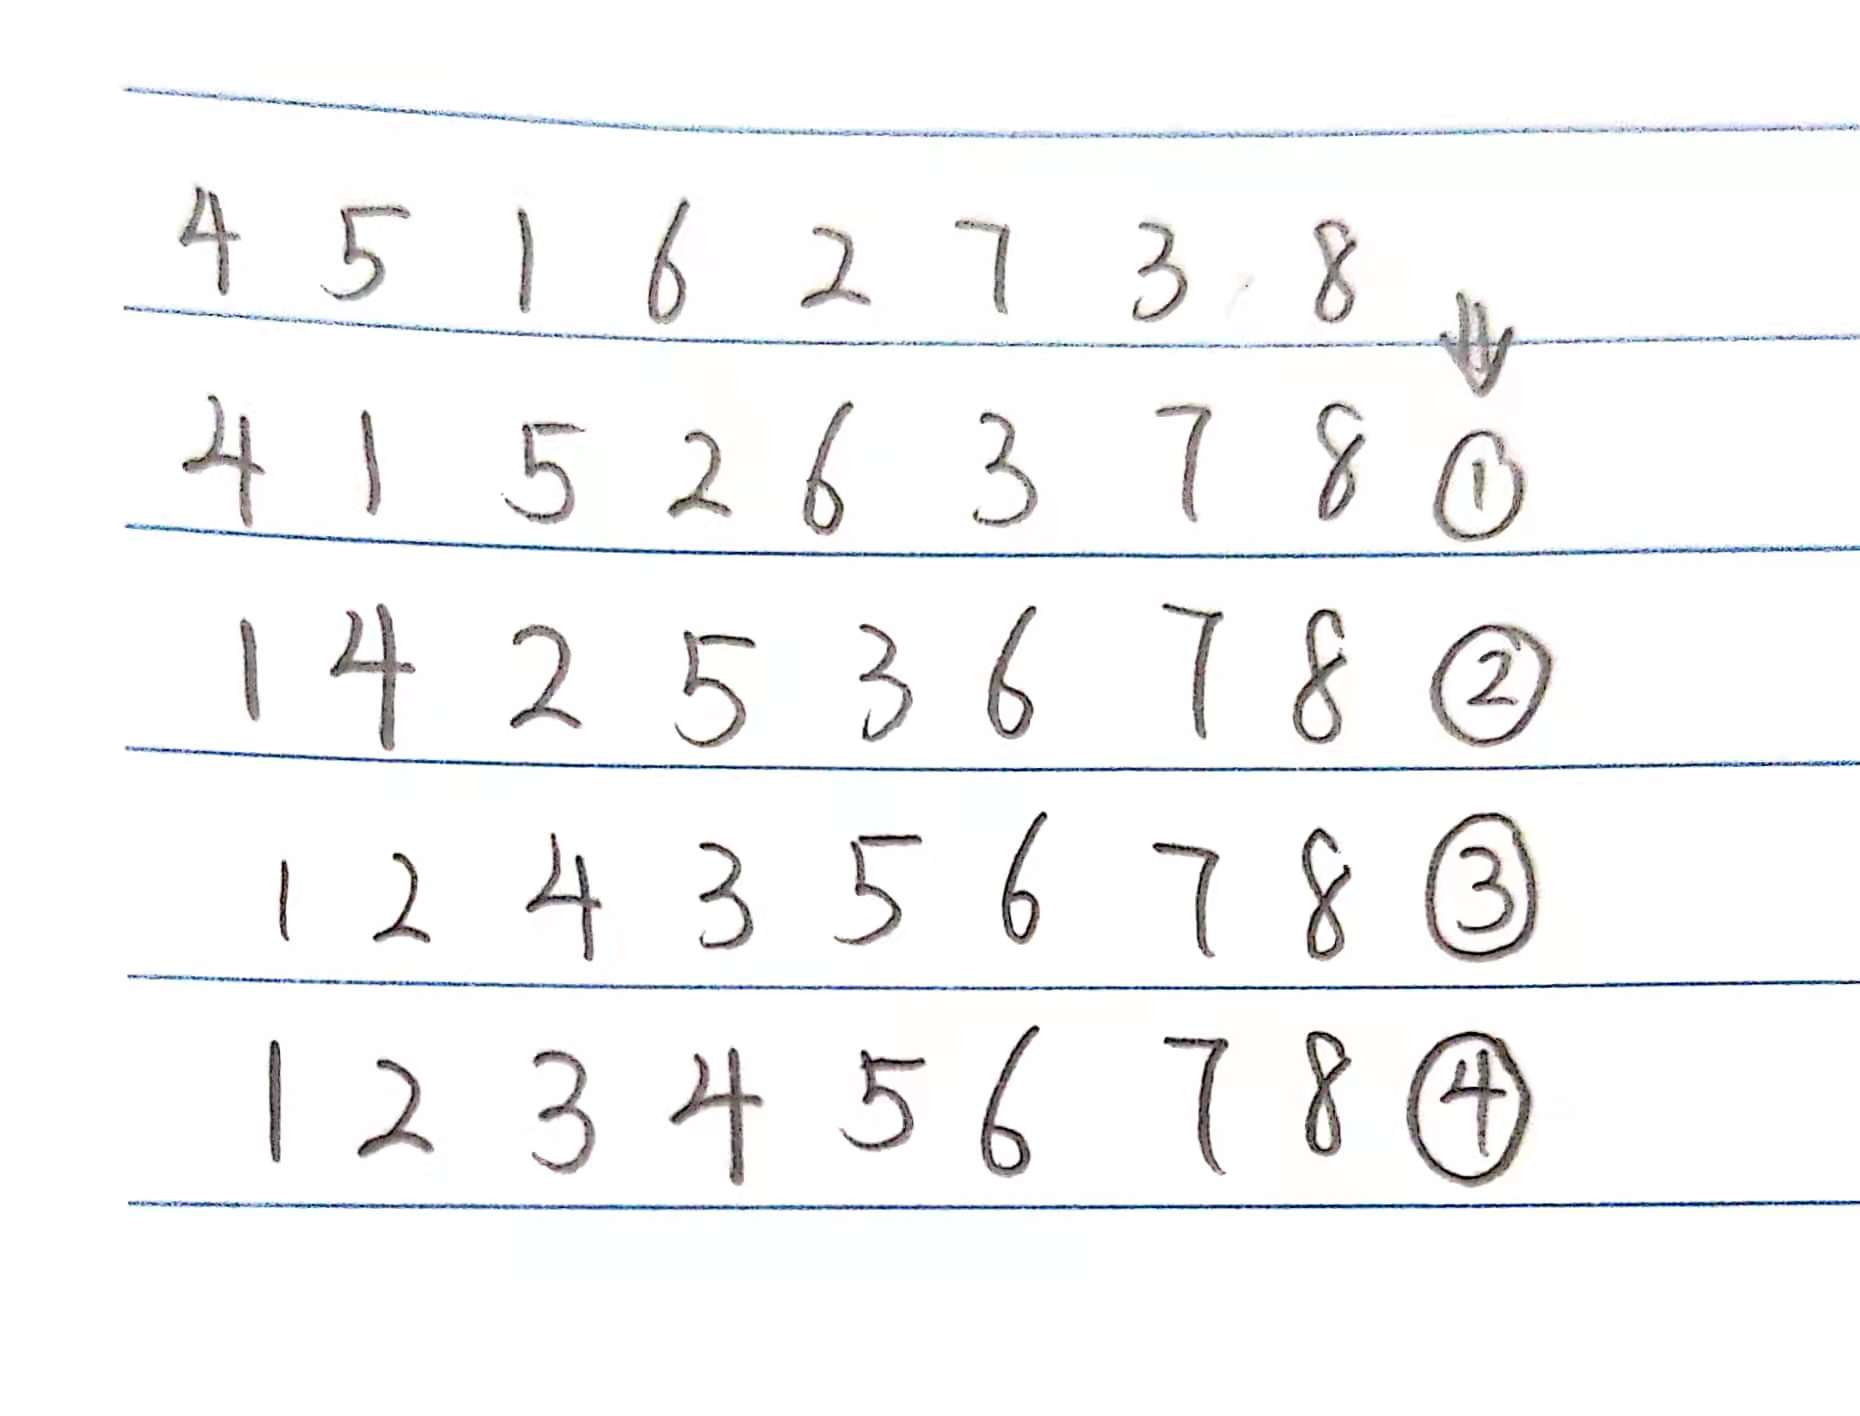 4 5 1 6 2 7 3 8
4 1 5 2 6 3 7 8 ①
1 4 2 5 3 6 7 8 ②
1 2 4 3 5 6 7 8 ③
1 2 3 4 5 6 7 8 ④